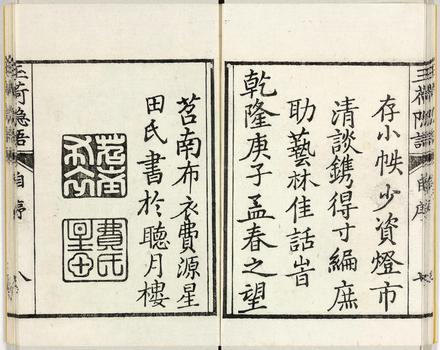 存小帙少資燈市
清談鐫得寸編庶
助藝林佳話峕
乾隆庚子孟春之望
苕南布衣費源星
田氏書於聽月樓
苕南布衣
費氏星田
玉荷隱語
自序
八